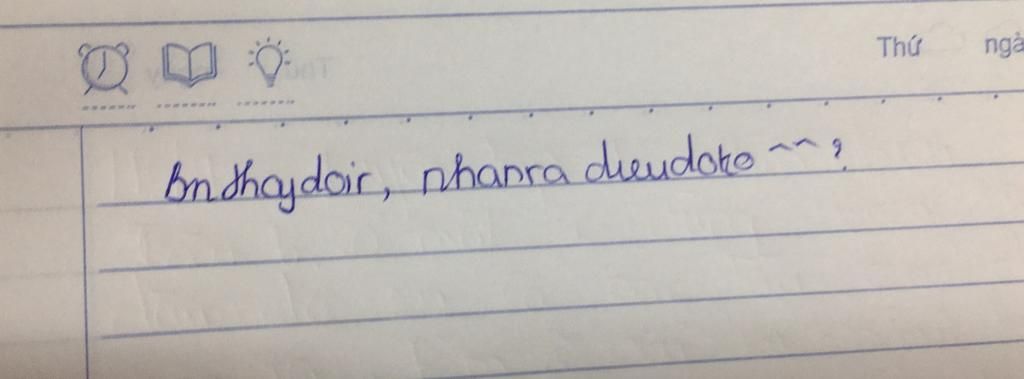 Thứ ngà
bn thaydoir, nhanra dieudoko ^^ ?